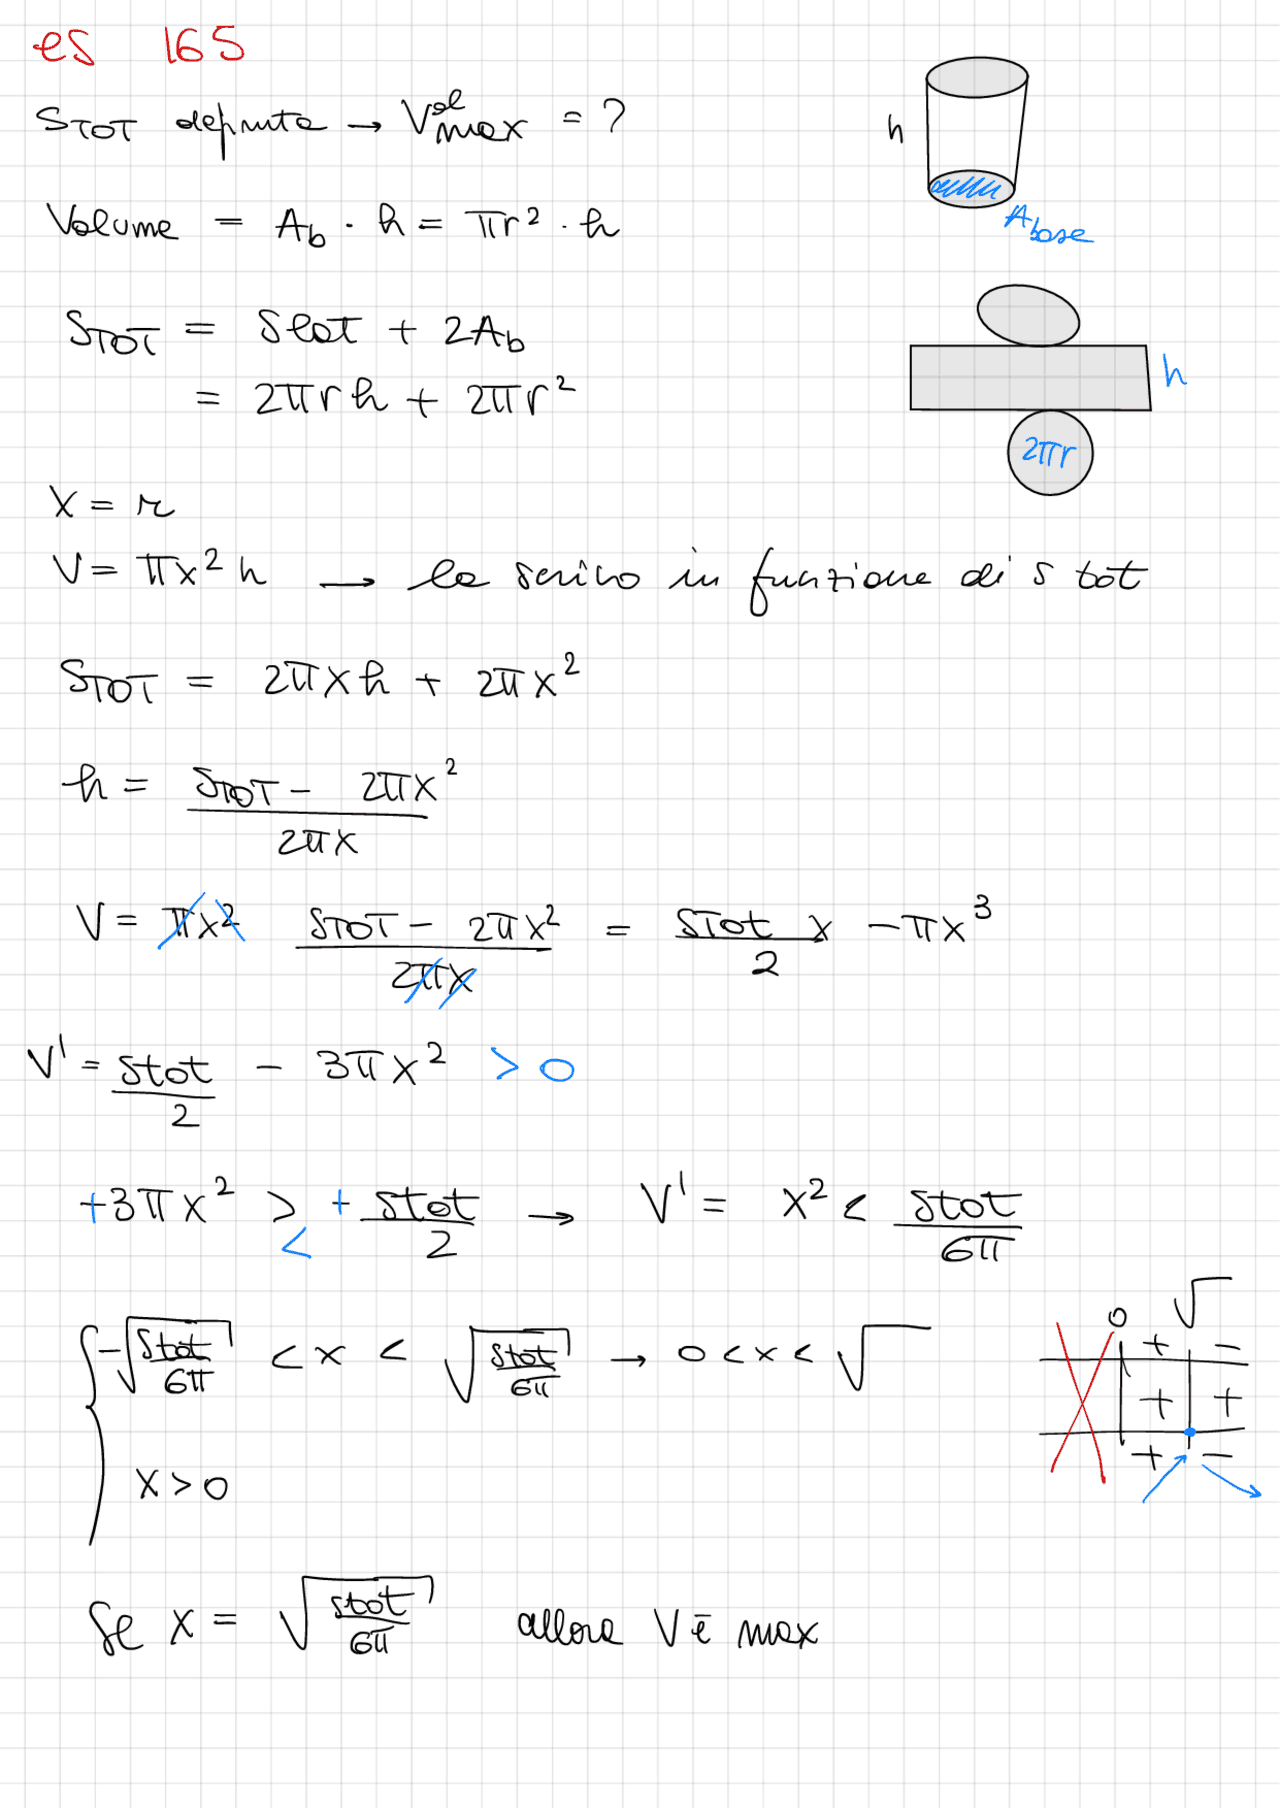 es 165
STOT definita → Vol max = ?
h
Abase
Volume = Ab · h = πr² · h
STOT = Slat + 2Ab
= 2πrh + 2πr²
h
2πr
X = r
V = πx² h → lo scrivo in funzione di s tot
STOT = 2πxh + 2πx²
h = (STOT - 2πx²) / 2πx
V = πx² (STOT - 2πx²) / 2πx = STot x / 2 - πx³
V' = Stot / 2 - 3πx² > 0
+3πx² > < + Stot / 2 → V' = x² < Stot / 6π
{ -√(Stot / 6π) < x < √(Stot / 6π) → 0 < x < √
x > 0
0 √
+ -
+ +
+ -
Se x = √(Stot / 6π) allora V è max